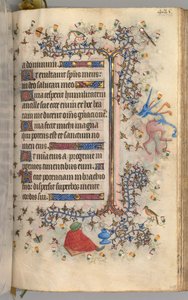 a dominum.
Et exultavit sp̄us meus:
in deo salutari meo.
Quia respexit humilitatem
ancille sue ecce enim ex hoc bea
tam me dicent om̄s gn̄aciones.
Quia fecit michi magna
qui potens est et sanctum no
men eius.
Et mīa eius a progenie in
progenies timentibus eum.
Fecit potentiam in brachio
suo: dispersit superbos mente
cordis sui.